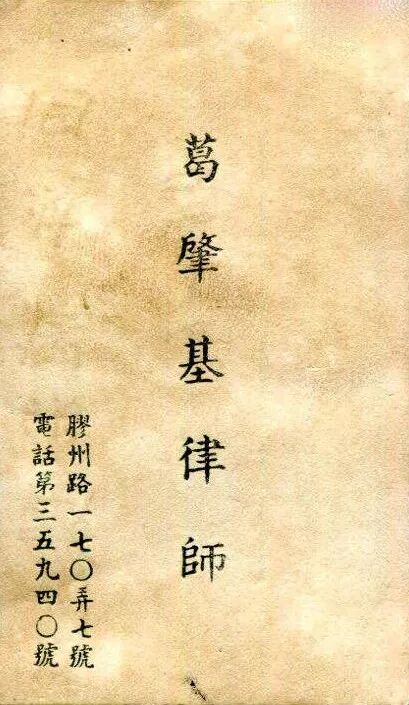 葛肇基律師
膠州路一七〇弄七號
電話第三五九四〇號